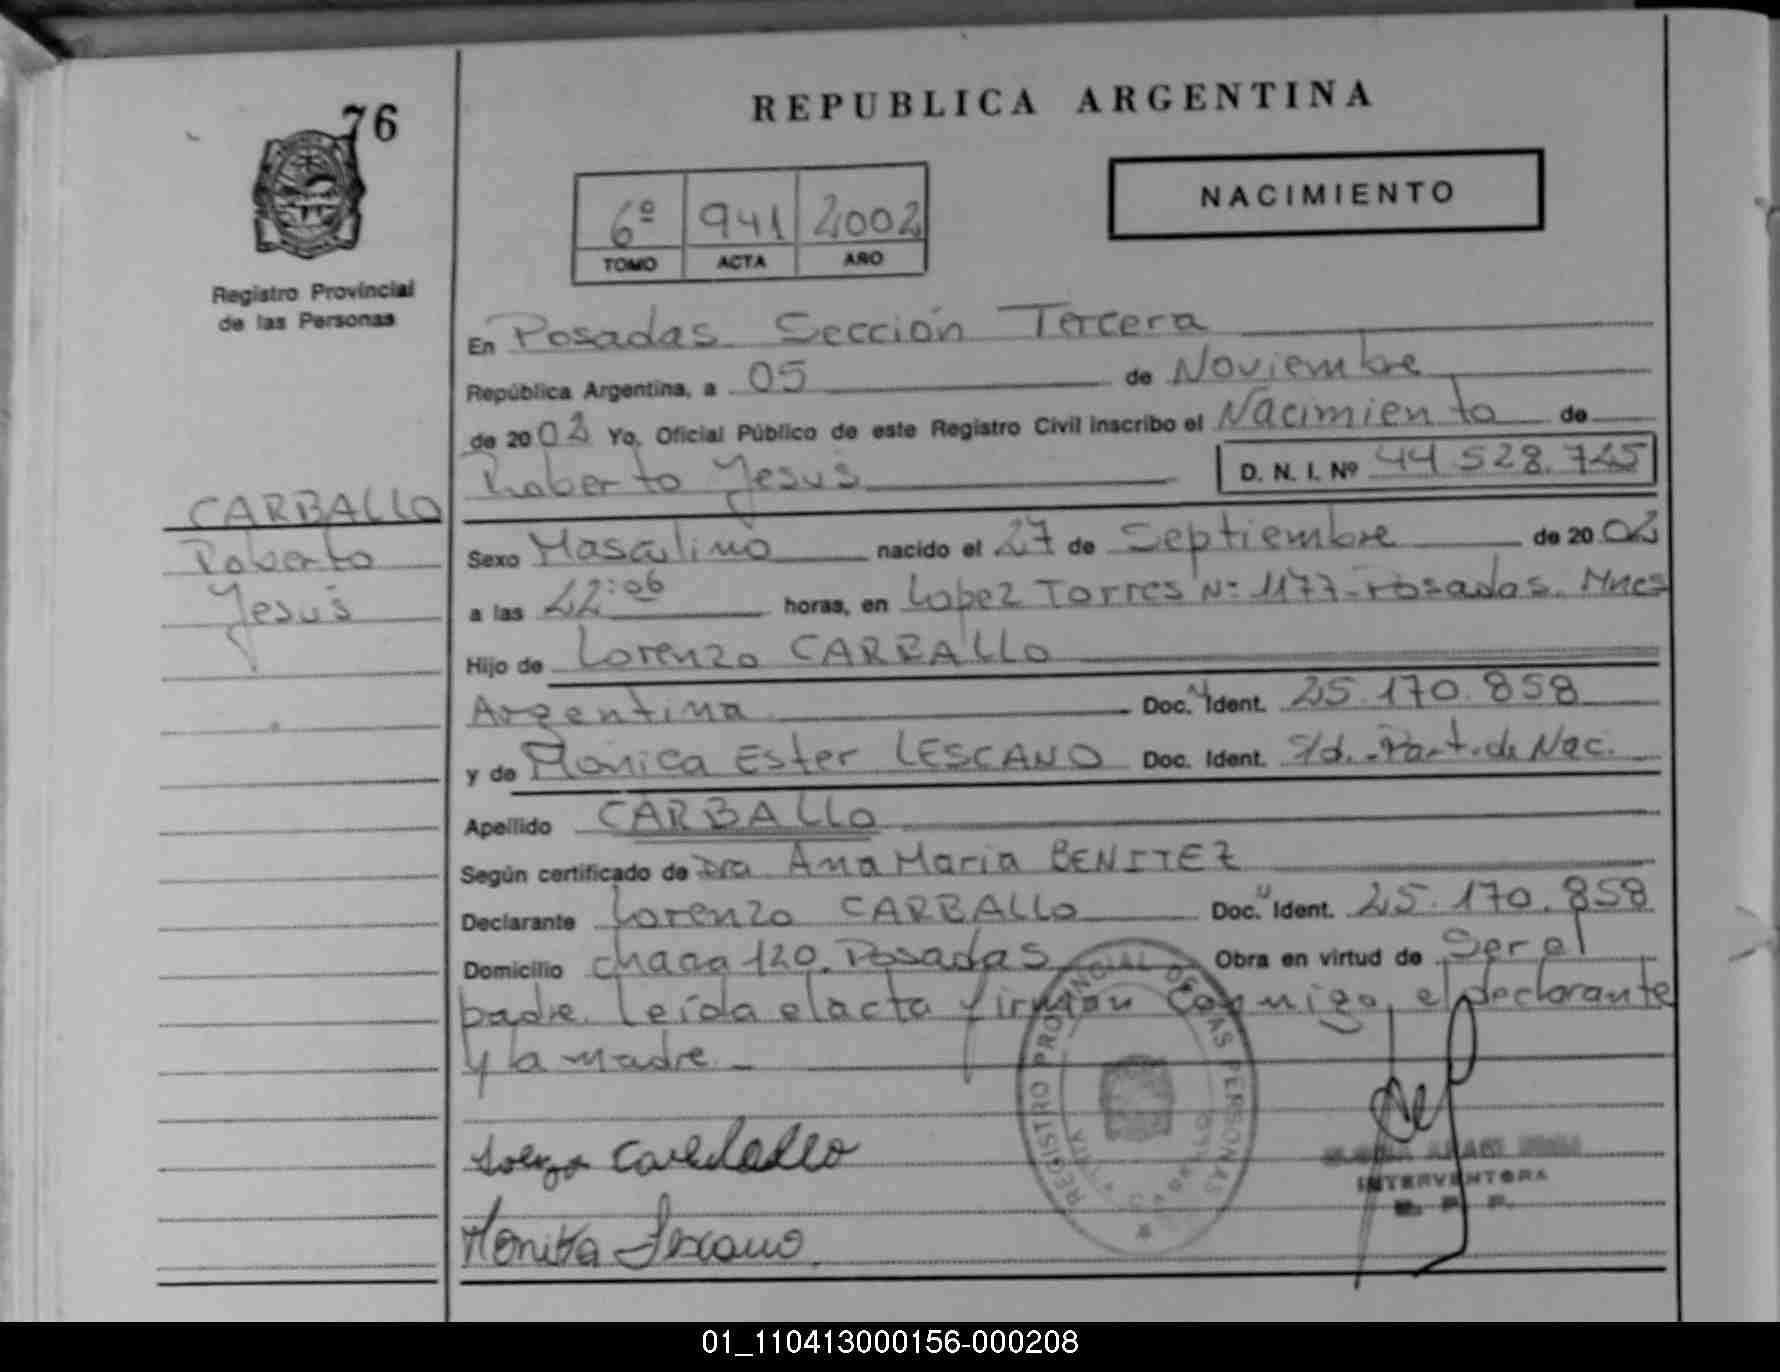 76
REPUBLICA ARGENTINA
NACIMIENTO
6º 941 2002
TOMO ACTA AÑO
Registro Provincial
de las Personas
En Posadas Sección Tercera
República Argentina, a 05 de Noviembre
de 2002 Yo, Oficial Público de este Registro Civil inscribo el Nacimiento de
Roberto Jesús D. N. I. Nº 44.528.725
CARBALLO
Roberto
Jesús
Sexo Masculino nacido el 27 de Septiembre de 2002
a las 22:06 horas, en Lopez Torres Nº 1177-Posadas. Mnes
Hijo de Lorenzo CARBALLO
Argentina Doc. Ident. 25.170.858
y de Mónica Ester LESCANO Doc. Ident. S/d.-Part. de Nac.
Apellido CARBALLO
Según certificado de Dra. Ana Maria BENITEZ
Declarante Lorenzo CARBALLO Doc. Ident. 25.170.858
Domicilio chacra 120. Posadas Obra en virtud de Ser el
padre. Leída el acta firman conmigo, el declarante
y la madre.-
Carballo
Monika Lescano
REGISTRO PROVINCIAL DE LAS PERSONAS
INTERVENTORA
R. P. P.
01_110413000156-000208